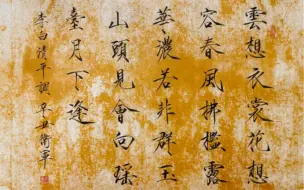 雲想衣裳花想
容春風拂檻露
華濃若非群玉
山頭見會向瑤
臺月下逢
李白清平調 衛軍